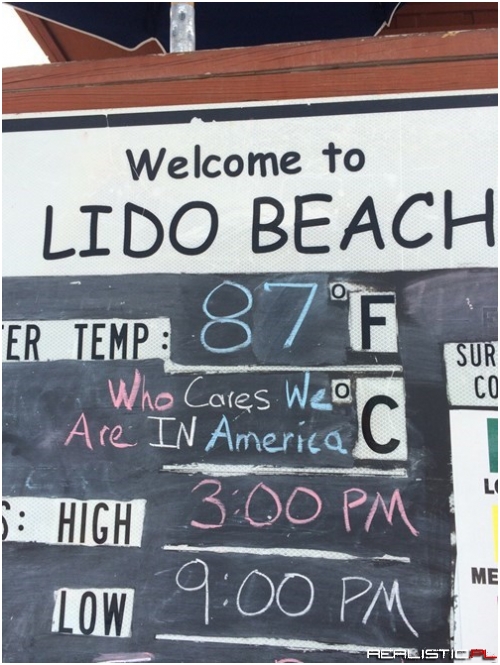 Welcome to
LIDO BEACH
ER TEMP: 87 °F
Who Cares We °C
Are IN America
S: HIGH 3:00 PM
LOW 9:00 PM
SUR
CO
LO
ME
REALISTIC.PL